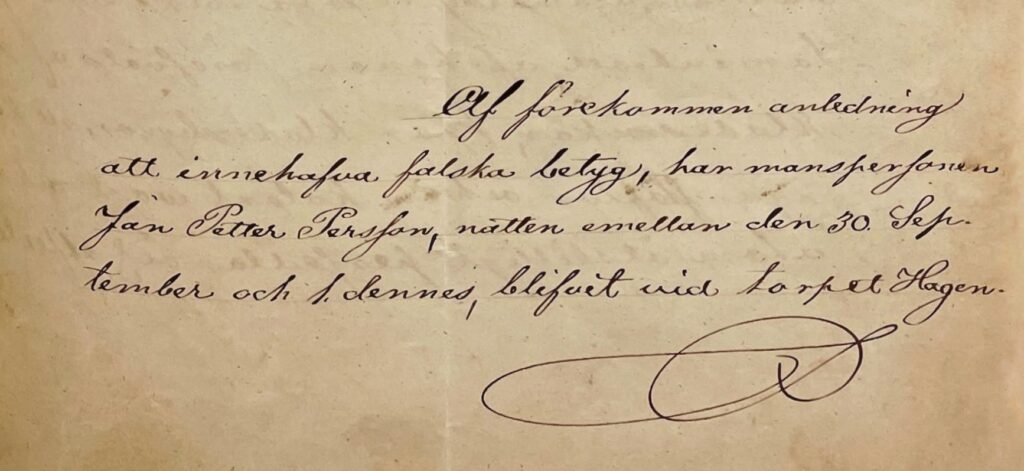 Af förekommen anledning
att innehafva falska betyg, har manspersonen
Jan Petter Persson, natten emellan den 30. Sep-
tember och 1. dennes, blifvit vid torpet Hagen-